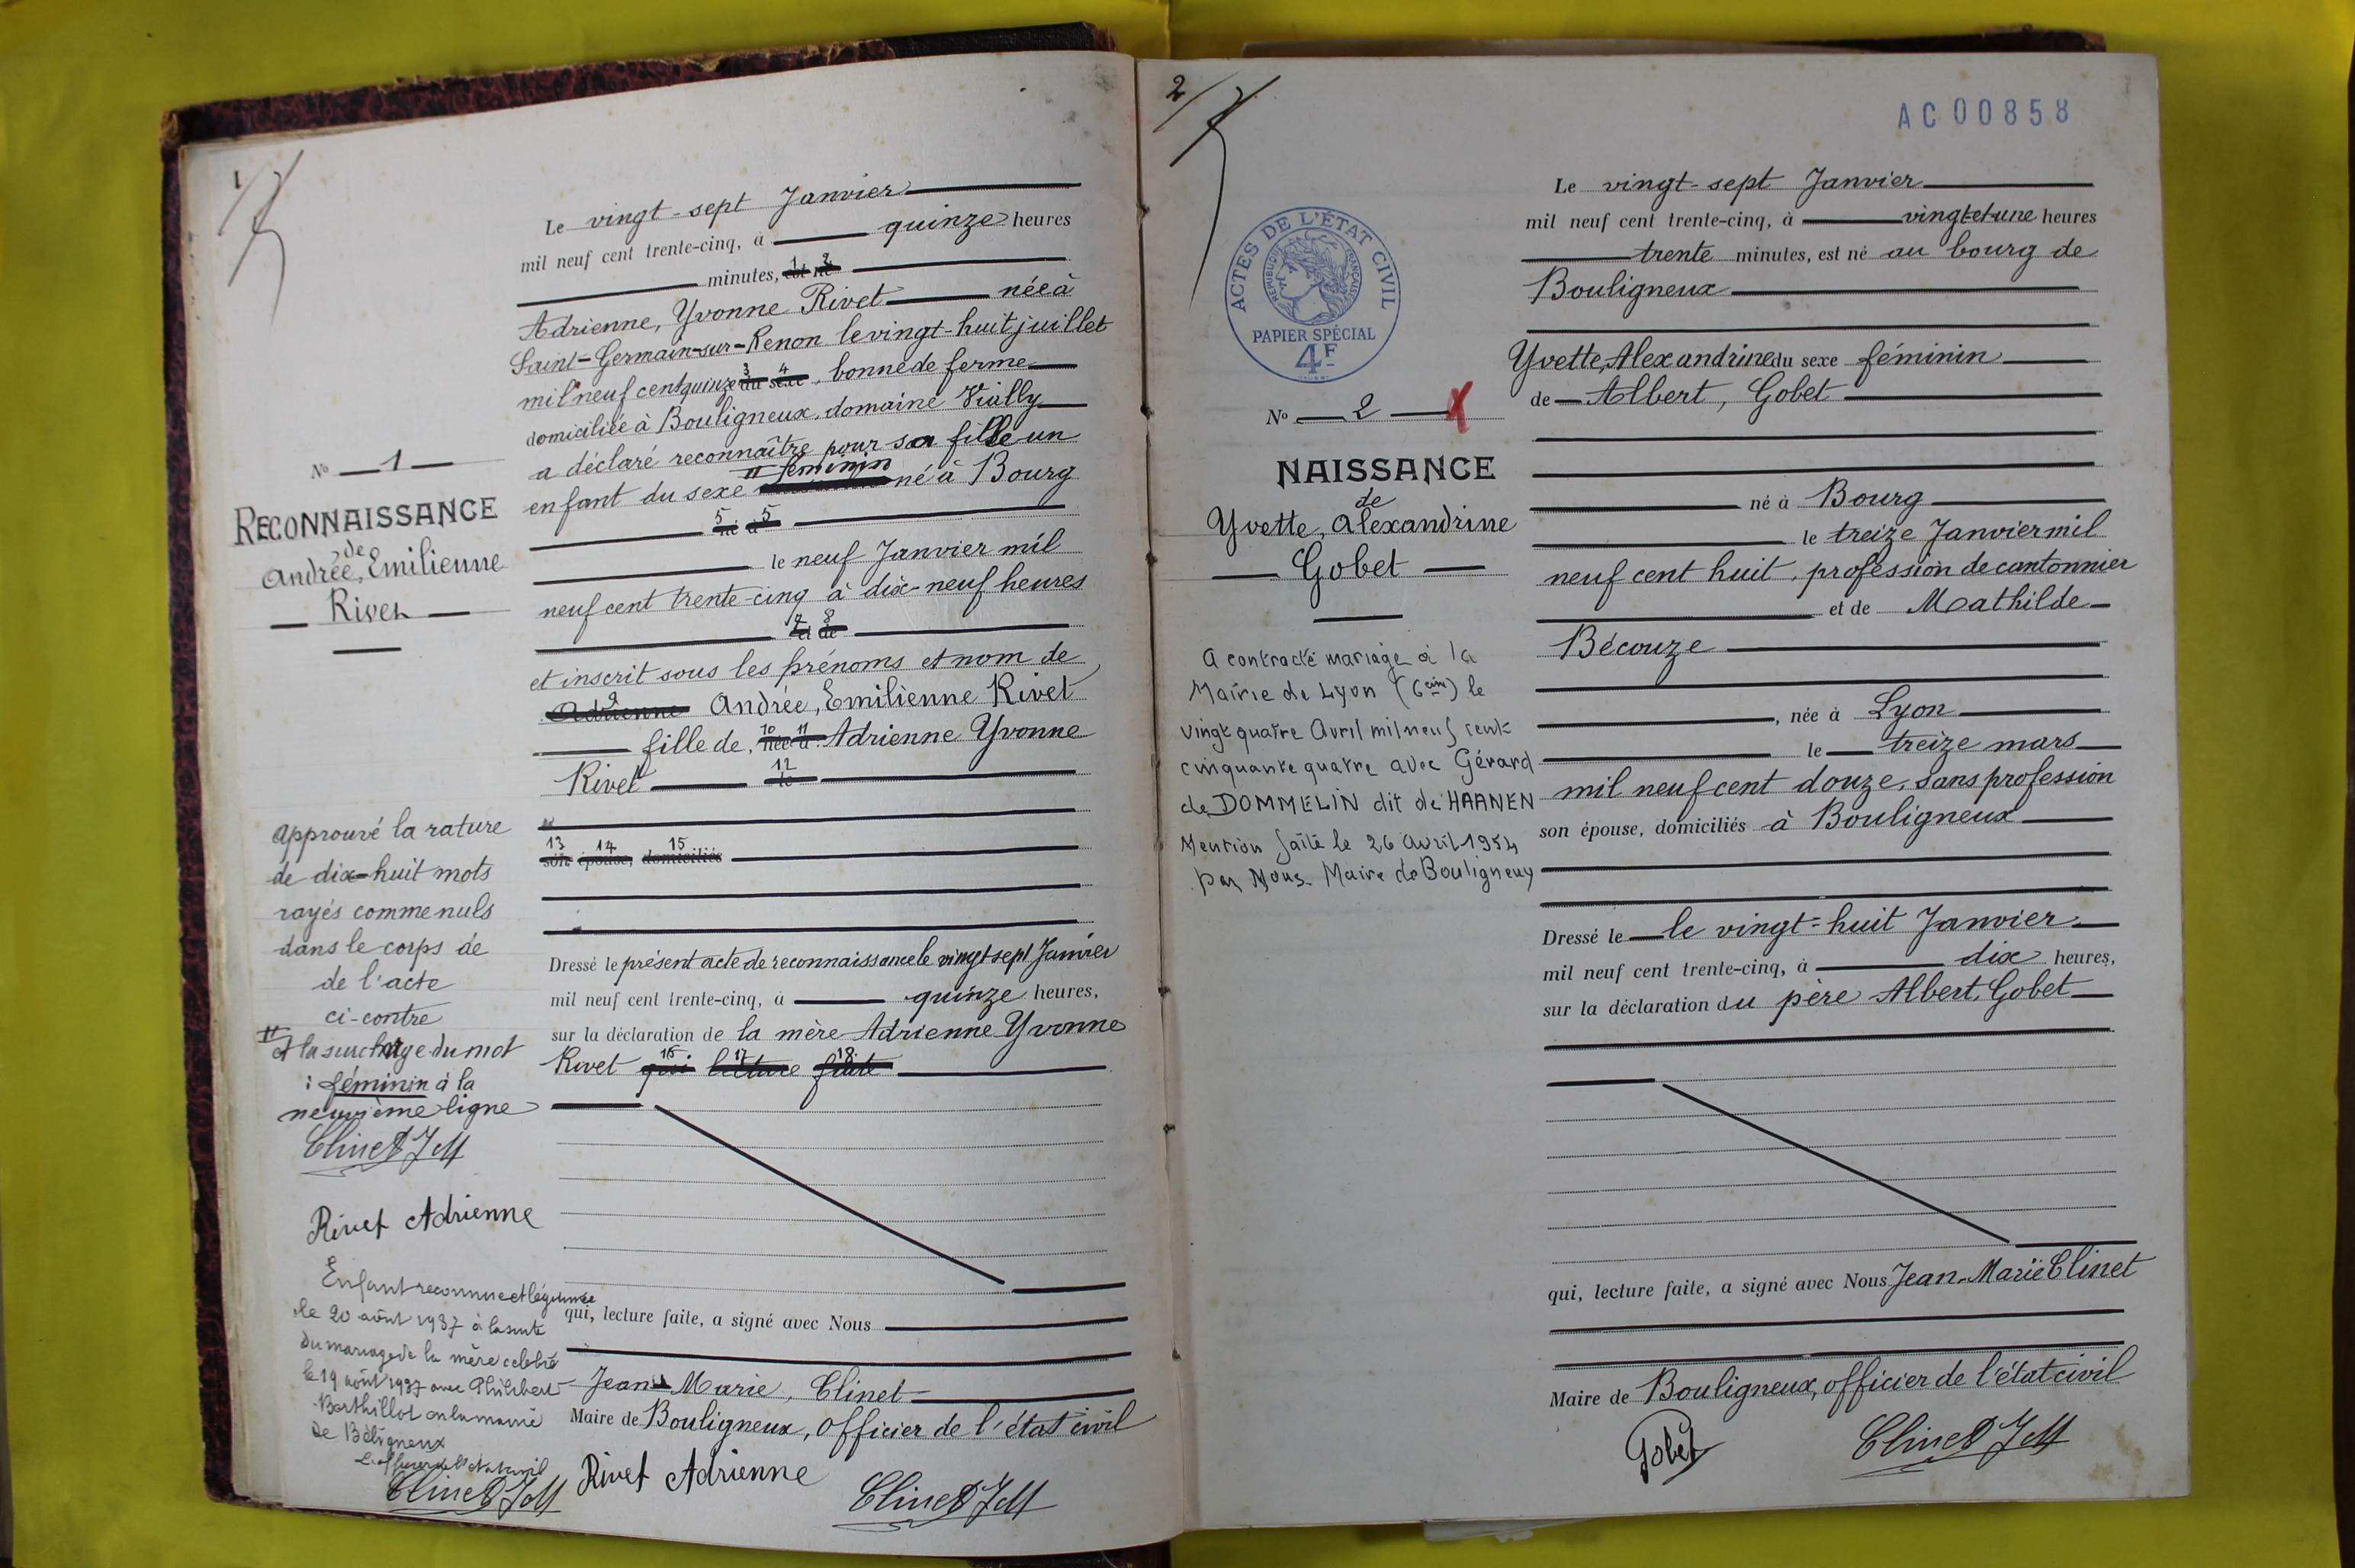 1
N° 1
RECONNAISSANCE
de
Andrée, Emilienne
Rivet
Approuvé la rature
de dix-huit mots
rayés comme nuls
dans le corps de
de l'acte
ci-contre
et la surcharge du mot
: féminin à la
neuvième ligne
Clinet JM
Rivet Adrienne
Enfant reconnue et légitimée
le 20 août 1937 à la suite
du mariage de la mère célébré
le 19 août 1937 avec Philibert
Berthillot en la mairie
de Béligneux
L'officier de l'état civil
Clinet JM
Le vingt-sept Janvier
mil neuf cent trente-cinq, à quinze heures
minutes, 1 est 2 né
Adrienne, Yvonne Rivet née à
Saint-Germain-sur-Renon le vingt-huit juillet
mil neuf cent quinze 3 du 4 sexe, bonne de ferme
domiciliée à Bouligneux, domaine Vially
a déclaré reconnaître pour sa fille un
féminin
enfant du sexe né à Bourg
5 né à 5
le neuf Janvier mil
neuf cent trente-cinq à dix-neuf heures
7 et 8 de
et inscrit sous les prénoms et nom de
9 Adrienne Andrée, Emilienne Rivet
fille de, 10 née 11 à Adrienne Yvonne
Rivet 12 le
13 14 15
son épouse, domiciliés
Dressé le présent acte de reconnaissance le vingt sept Janvier
mil neuf cent trente-cinq, à quinze heures,
sur la déclaration de la mère Adrienne Yvonne
Rivet 16 qui 17 lecture 18 faite
qui, lecture faite, a signé avec Nous
Jean-Marie, Clinet
Maire de Bouligneux, officier de l'état civil
Rivet Adrienne Clinet JM
2
AC 00858
ACTES DE L'ÉTAT CIVIL
RÉPUBLIQUE FRANÇAISE
PAPIER SPÉCIAL
4F
N° 2 X
NAISSANCE
de
Yvette, Alexandrine
Gobet
A contracté mariage à la
Mairie de Lyon (6eme) le
vingt quatre Avril mil neuf cent
cinquante quatre avec Gérard
de DOMMELIN dit de HAANEN
Mention faite le 26 Avril 1954
par Nous Maire de Bouligneux
Le vingt-sept Janvier
mil neuf cent trente-cinq, à vingt et une heures
trente minutes, est né au bourg de
Bouligneux
Yvette, Alexandrine du sexe féminin
de Albert, Gobet
né à Bourg
le treize Janvier mil
neuf cent huit, profession de cantonnier
et de Mathilde
Bécouze
, née à Lyon
le treize mars
mil neuf cent douze, sans profession
son épouse, domiciliés à Bouligneux
Dressé le le vingt-huit Janvier
mil neuf cent trente-cinq, à dix heures,
sur la déclaration du père Albert, Gobet
qui, lecture faite, a signé avec Nous Jean-Marie Clinet
Maire de Bouligneux, officier de l'état civil
Gobet Clinet JM